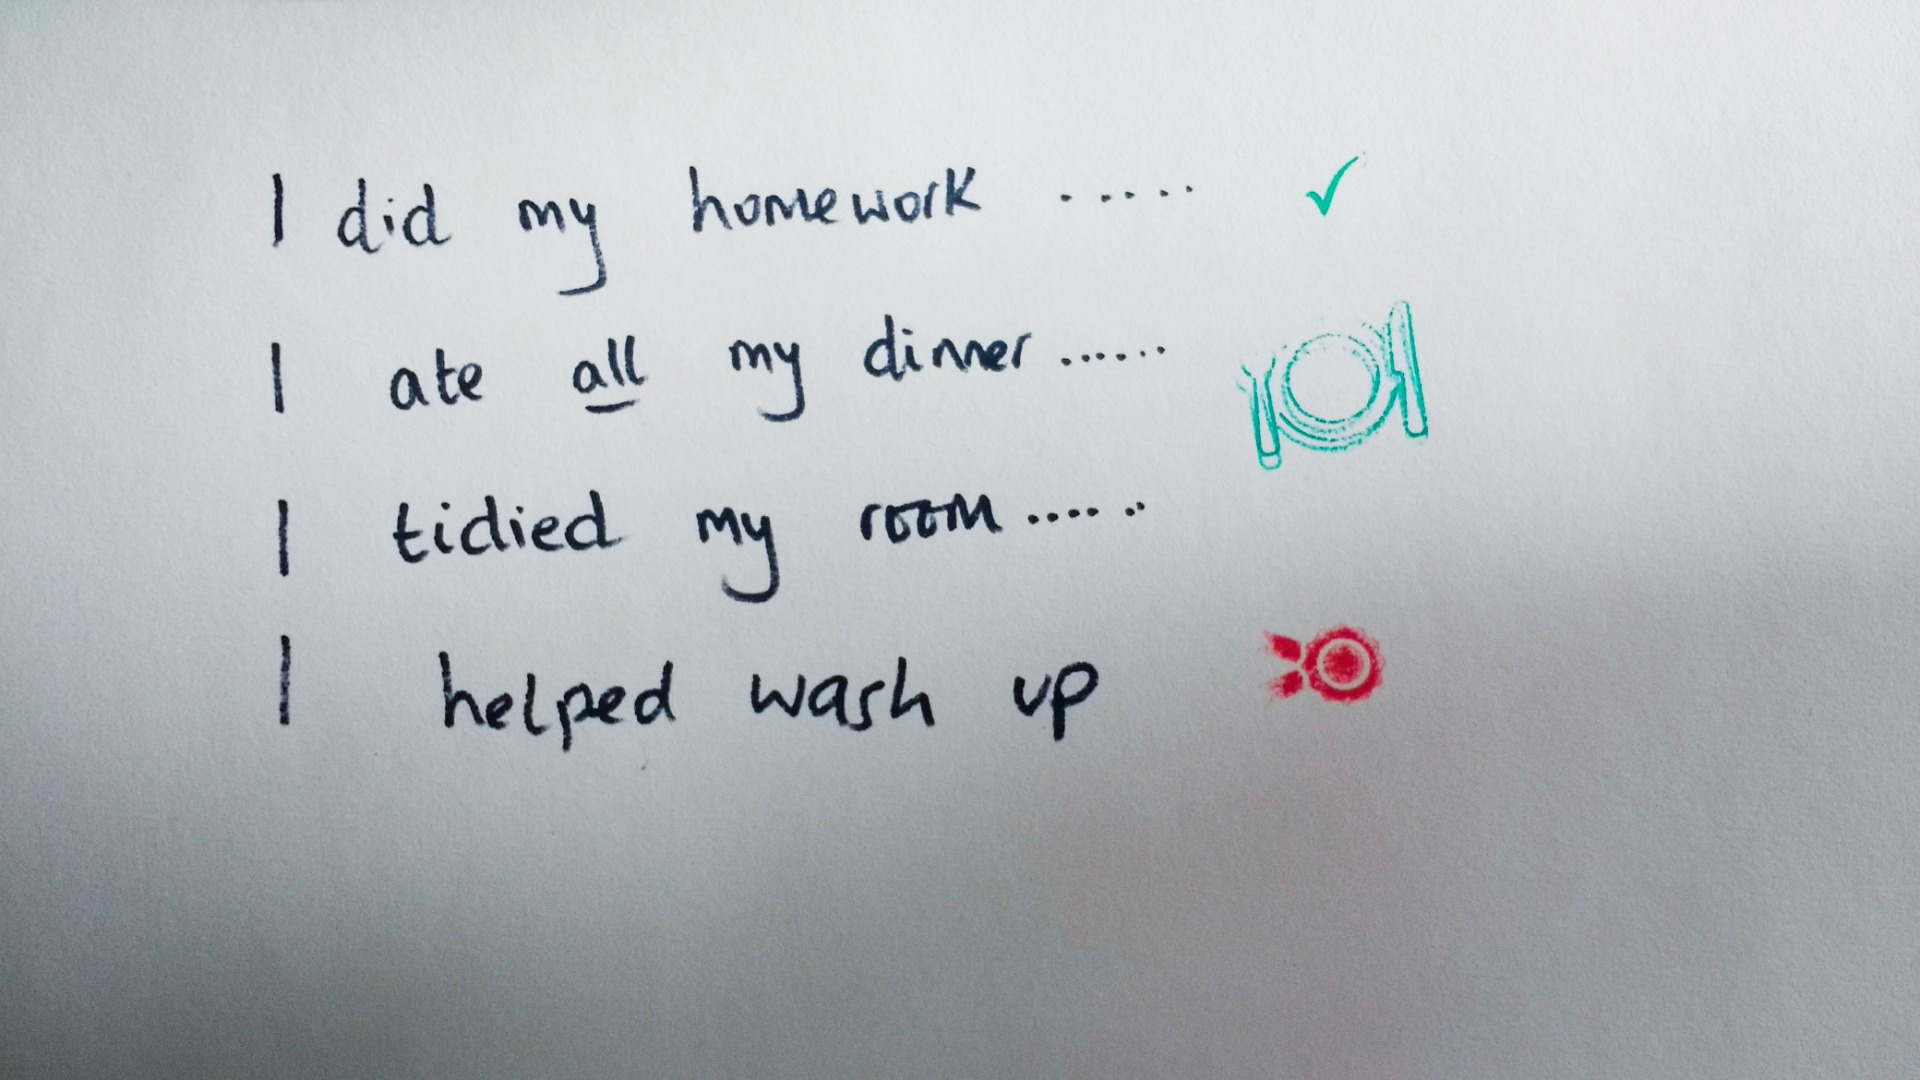 I did my homework .....
I ate all my dinner ......
I tidied my room ......
I helped wash up